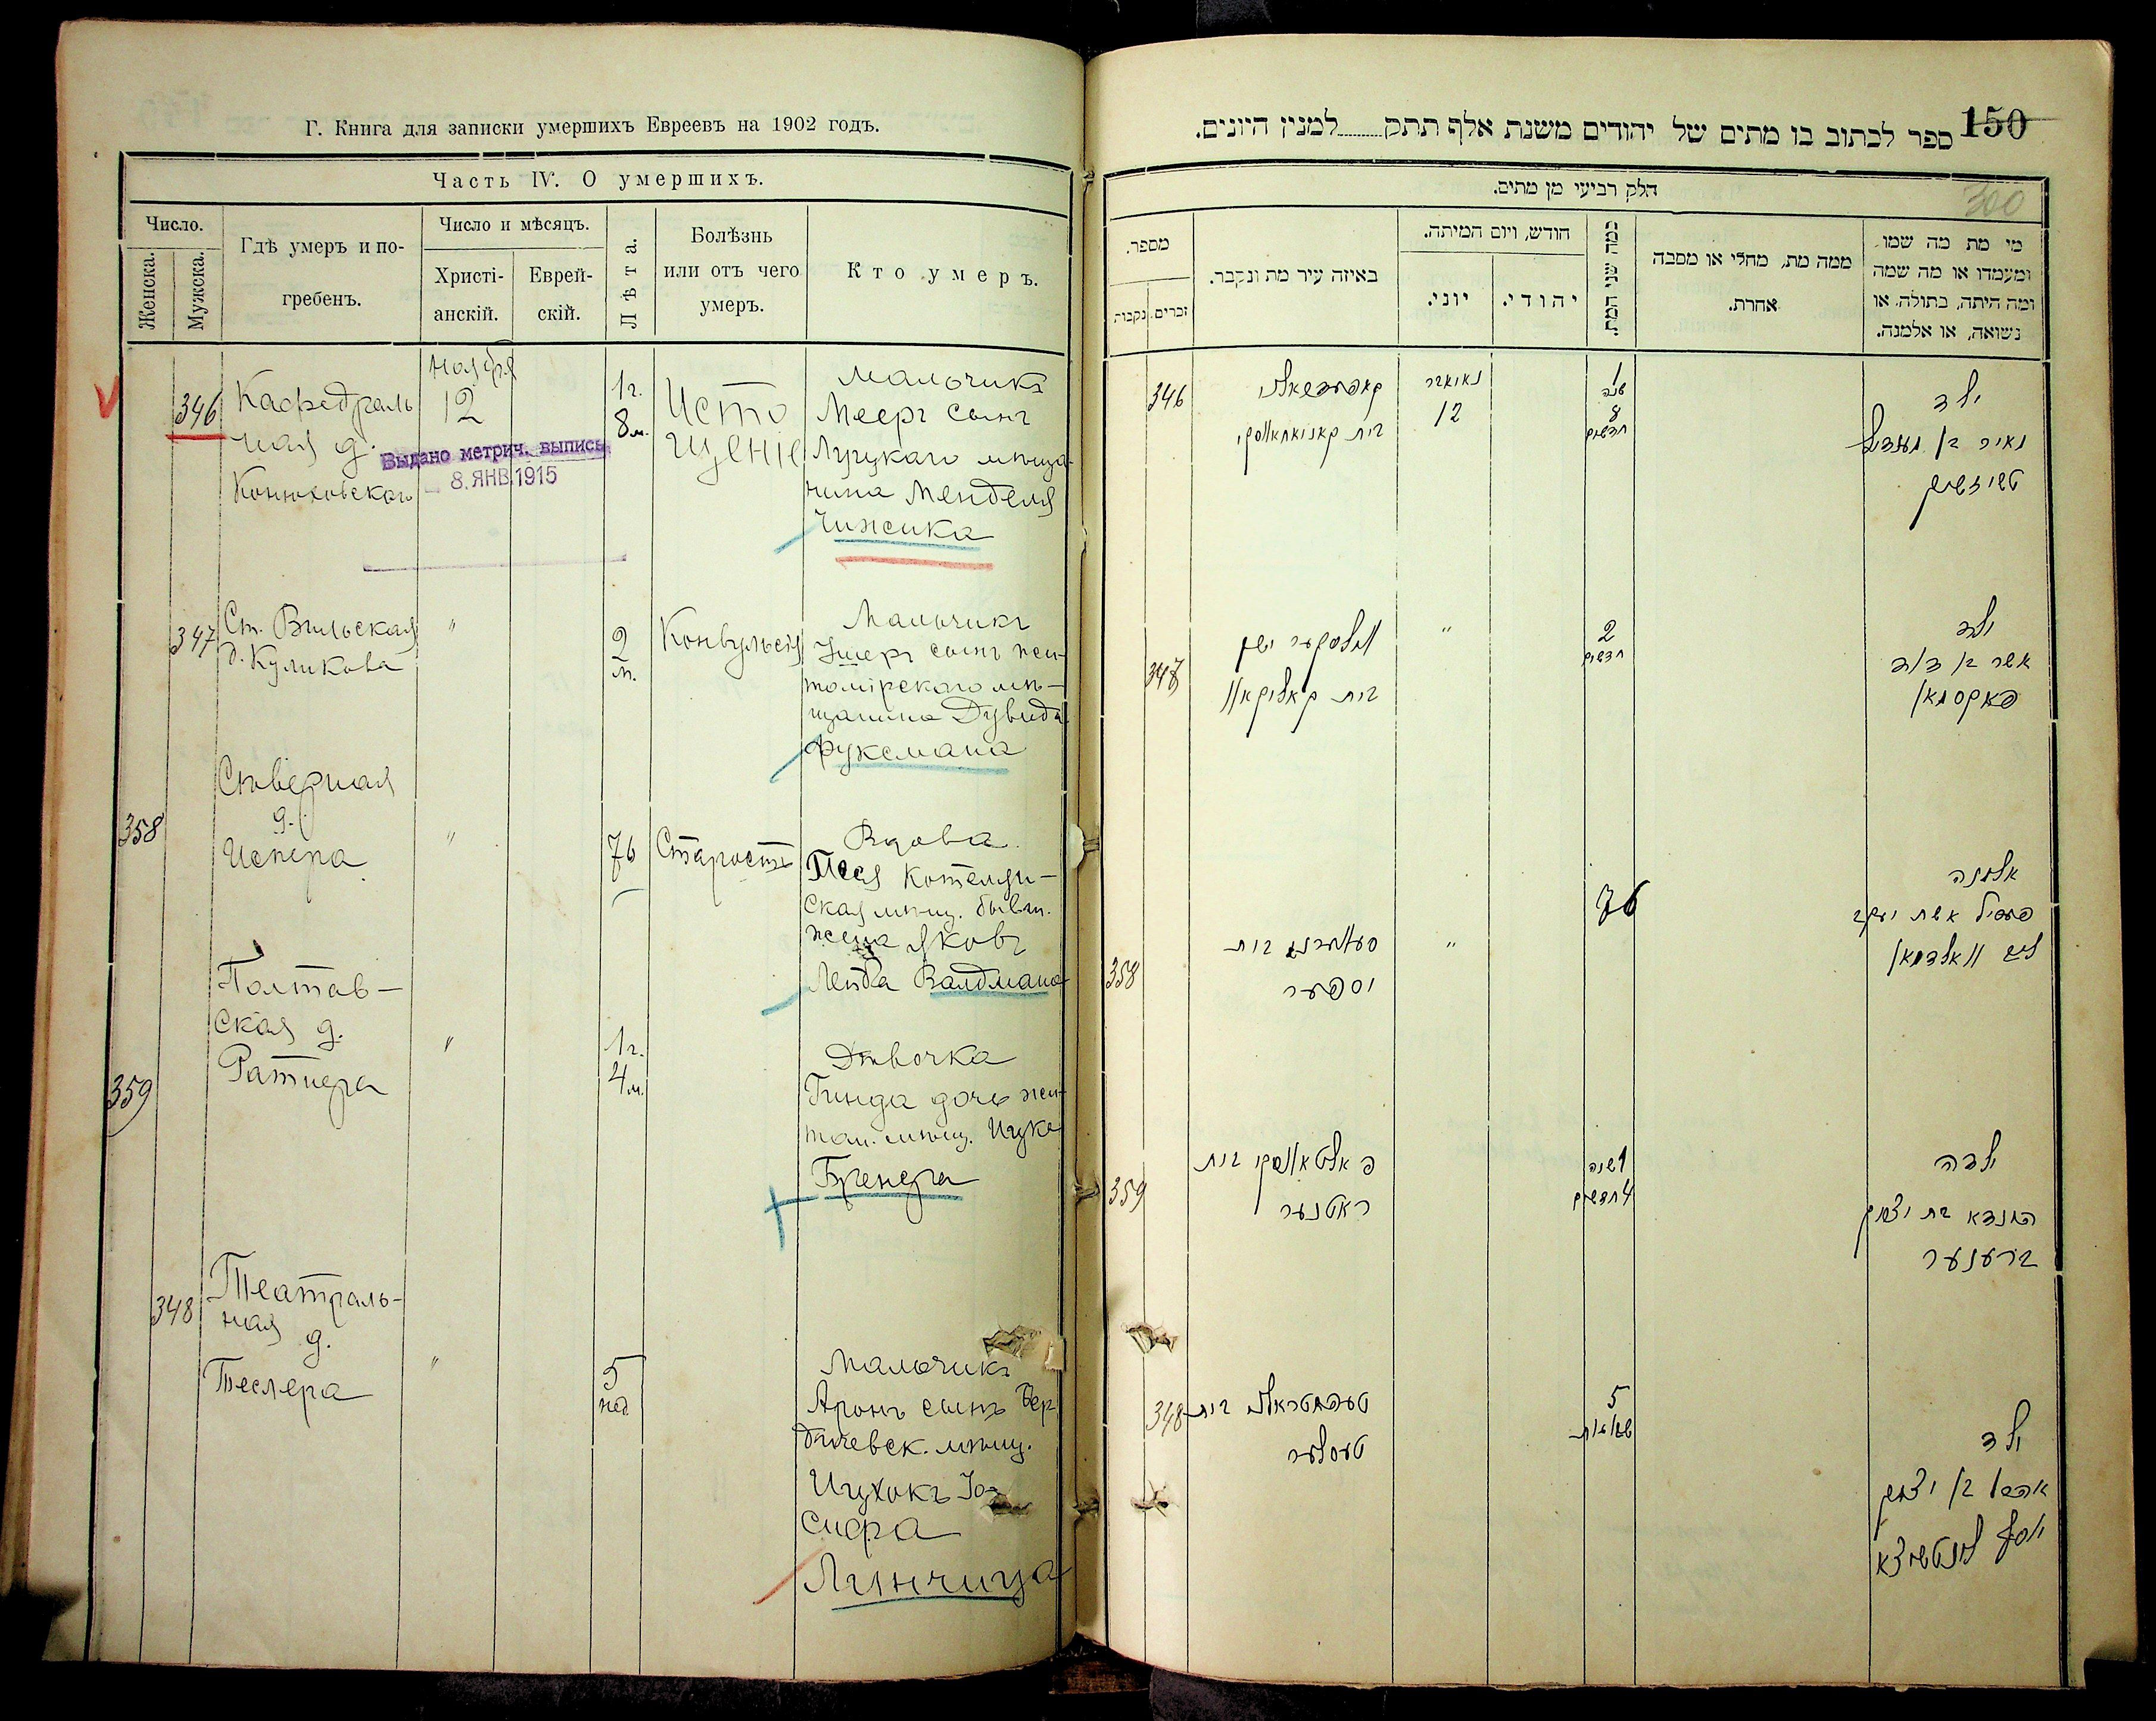 Г. Книга для записки умершихъ Евреевъ на 1902 годъ.
Часть IV. О умершихъ.
Число.
Женска.
Мужска.
Гдѣ умеръ и по-
гребенъ.
Число и мѣсяцъ.
Христі-
анскій.
Еврей-
скій.
Лѣта.
Болѣзнь
или отъ чего
умеръ.
Кто умеръ.
346
Кафедраль
ная д.
Конюховскаго
Ноября
12
1 г.
8 м.
Исто
щеніе
Мальчикъ
Мееръ сынъ
Луцкаго мѣща-
нина Менделя
Чижика
Выдано метрич. выпись
8. ЯНВ. 1915
347
Ст. Вильская
д. Куликова
"
2
м.
Конвульсія
Мальчикъ
Ушеръ сынъ жи-
томірскаго мѣ-
щанина Дувида
Фуксмана
358
Сѣверная
д.
Испера
"
76
Старость
Вдова
Песя Котельн-
ская мѣщ. бывш.
жена Яковъ
Лейба Валдмана
359
Полтав-
ская д.
Ратнера
"
1 г.
4 м.
Дѣвочка
Гинда дочь жи-
том. мѣщ. Ицко
Бренера
348
Театраль-
ная д.
Теслера
"
5
нед.
Мальчикъ
Аронъ сынъ Бер
дичевск. мѣщ.
Ицхокъ Іо-
сифа
Линчица
150
300
ספר לכתוב בו מתים של יהודים משנת אלף תתק למנין היונים.
חלק רביעי מן מתים.
מספר.
נקבות
זכרים.
באיזה עיר מת ונקבר.
חודש, ויום המיתה.
יוני.
יהודי.
כמה שני המת.
ממה מת, מחלי או מסבה
אחרת.
מי מת מה שמו
ומעמדו או מה שמה
ומה היתה, בתולה, או
נשואה, או אלמנה.
346
12
1
שנה
8
חדשים
ילד
מאיר בן מענדיל
טשיזשיק
347
בית קאליקאוו
"
2
חדשים
ילד
אשר בן דוד
פוקסמאן
358
בית
יספער
"
76
אלמנה
פעסיל אשת יעקב
ליב וואלדמאן
359
פאלטאווסקי בית
ראטנער
1 שנה
4 חדשים
ילדה
הינדא בת יצחק
ברענער
348
בית
טעסלער
5
שבועות
ילד
אהרן בן יצחק
יוסף לינטשיצא